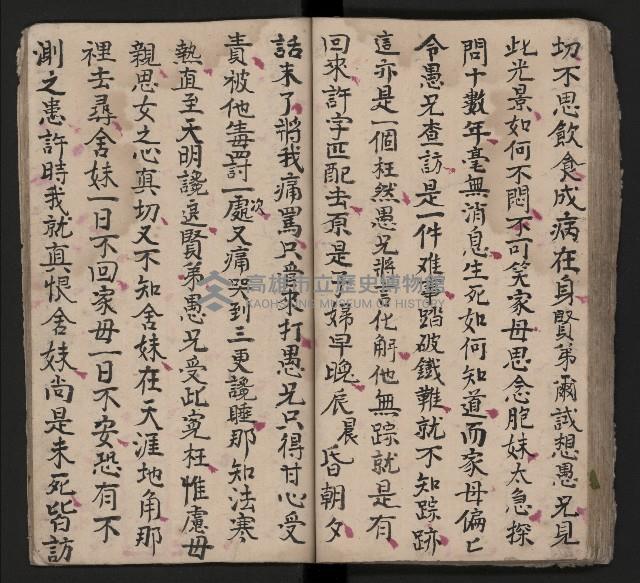 切不思飲食成病在身賢弟爾試想愚兄見
此光景如何不悶不可笑家母思念胞妹太急探
問十數年毫無消息生死如何知道而家母偏亡
令愚兄查訪是一件难事踏破鐵鞋就不知踪跡
這亦是一個枉然愚兄將言化解他無踪就是有
回來許字匹配去原是為婦早晚辰晨昏朝夕
話未了將我痛罵只爱來打愚兄只得甘心受
責被他毒罰一處次又痛哭到三更纔睡那知法寒
執直至天明纔退賢弟愚兄受此寃枉惟慮母
親思女之心真切又不知舍妹在天涯地角那
裡去尋舍妹一日不回家母一日不安恐有不
測之患許時我就真恨舍妹尚是未死皆訪
高雄市立歷史博物館
KAOHSIUNG MUSEUM OF HISTORY